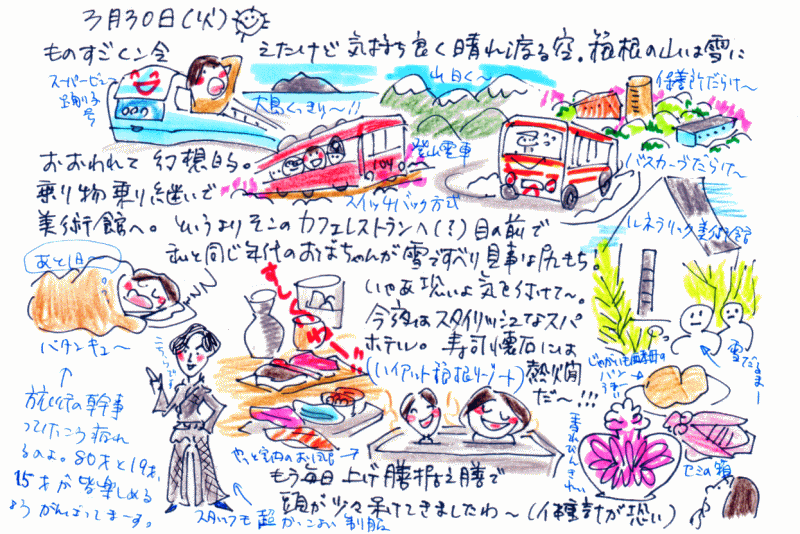 3月30日(火)
ものすごくン令
えたけど 気持ち良く晴れ渡る空。箱根の山は雪に
スーパービュー
踊り子
号
大島くっきり〜!!
山白く〜
保養所だらけ〜
登山電車
バスカーブだらけ〜
スイッチバック方式
おおわれて 幻想的。
乗り物乗り継いで
美術館へ。というよりそこのカフェレストランへ(!?)目の前で
ルネラリック美術館
私と同じ年代のおばちゃんが雪ですべり見事な尻もち!
いやあ恐いよ気を付けて〜。
今夜はスタイリッシュなスパ
ホテル。寿司懐石には
(ハイアット箱根リゾート)熱燗
だ〜!!!
あと1日〜
バタンキュ〜
こちらです
旅行の幹事
ってけっこう疲れ
るのよ。80才と19才、
15才が皆楽しめる
ようがんばってまーす。
スタッフも超かっこよい制服
やっと室内のお風呂
もう毎日上げ膳据え膳で
頭が少々呆けてきましたわ〜(体重計が恐い)
雪だるまー
パン
香水びんきれい
セミの箱